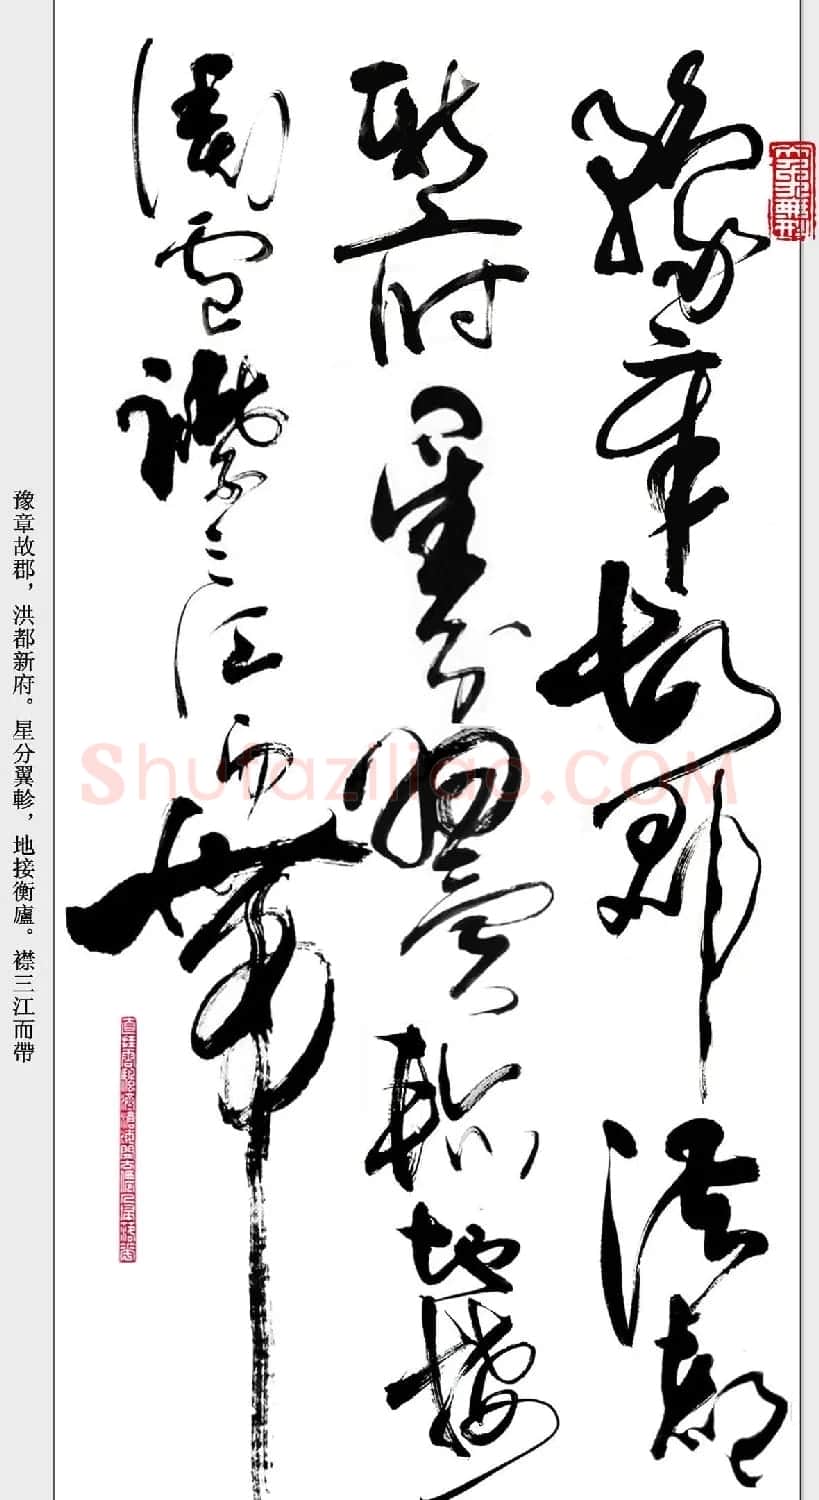 豫章故郡洪都
新府星分翼軫地接
衡廬襟三江而帶
豫章故郡，洪都新府。星分翼軫，地接衡廬。襟三江而帶
Shufaziliao.COM